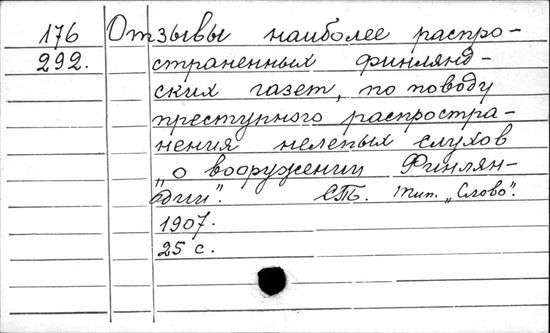 176 Отзывы наиболее распро-
292. страненных финлянд-
ских газет, по поводу
преступного распростра-
нения нелепых слухов
"о вооружении Финлян-
дии". СПб. тип. "Слово".
1907.
25 с.